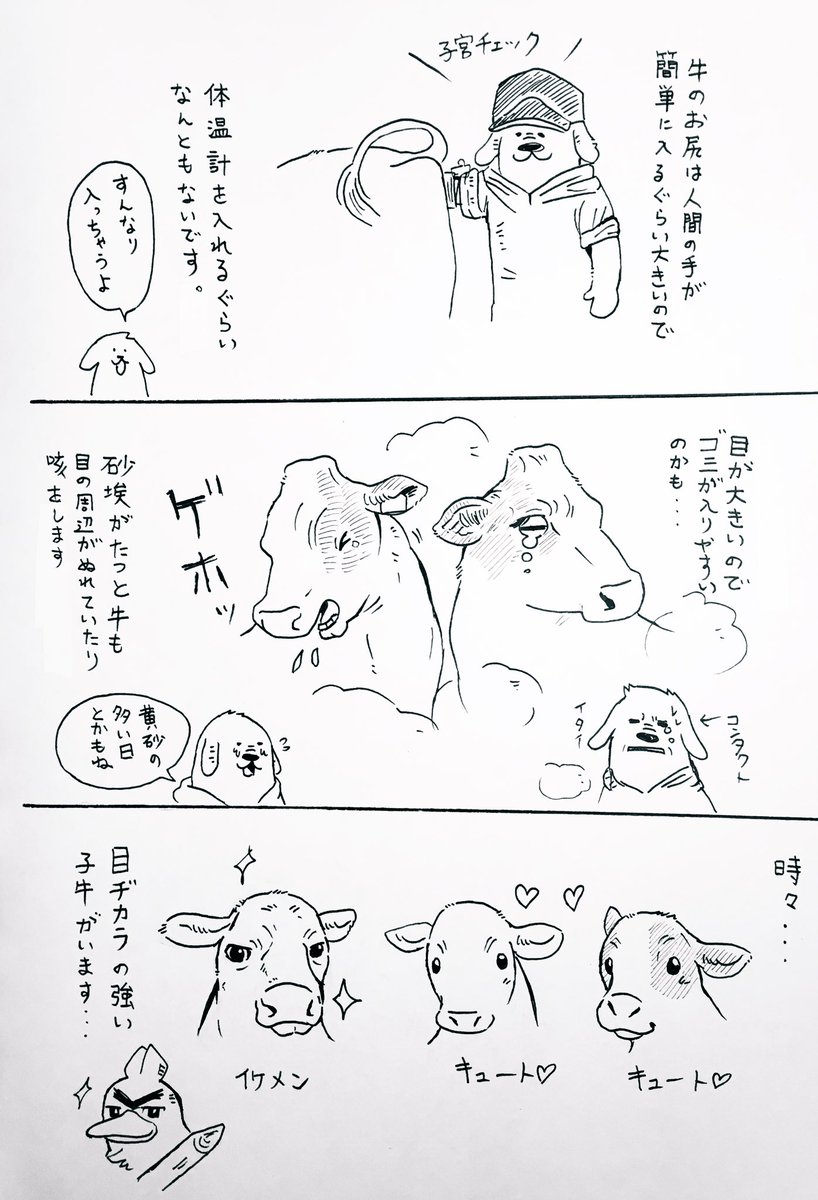 牛のお尻は人間の手が
簡単に入るぐらい大きいので
子宮チェック
体温計を入れるぐらい
なんともないです。
すんなり
入っちゃうよ
目が大きいので
ゴミが入りやすい
のかも・・・
コンタクト
イタイ
ゲホッ
砂埃がたつと牛も
目の周辺がぬれていたり
咳をします
黄砂の
多い日
とかもね
時々・・・
キュート♡
キュート♡
イケメン
目ヂカラの強い
子牛がいます・・・